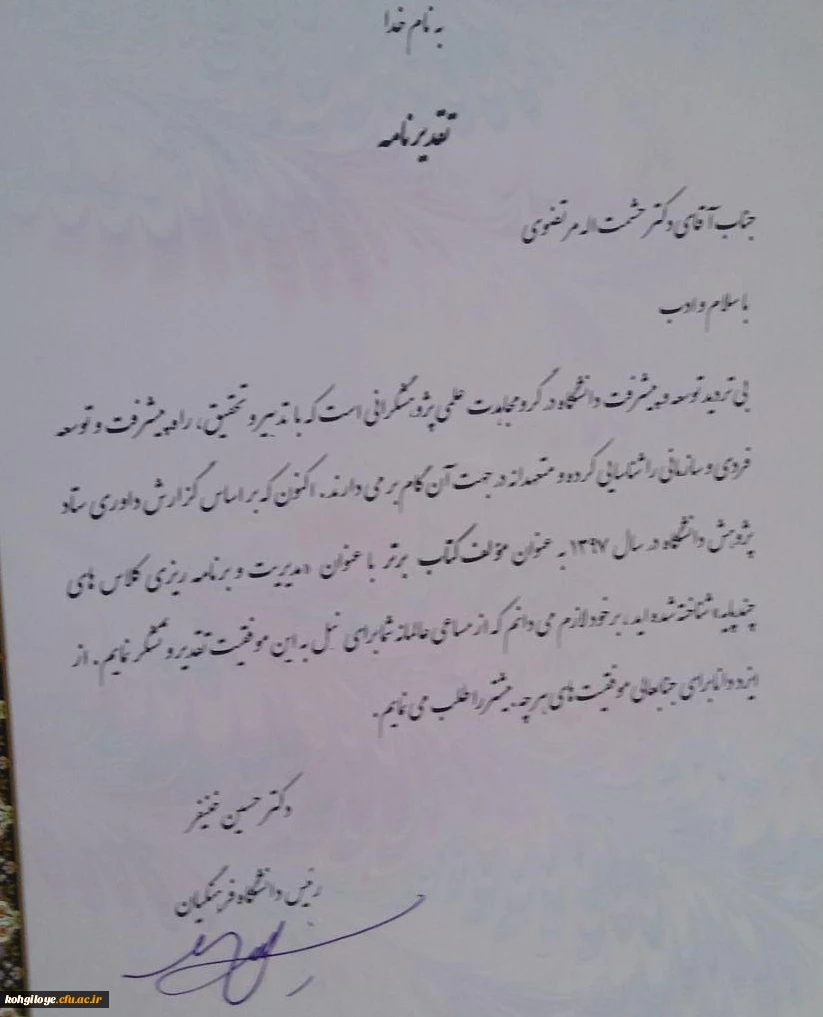 به نام خدا
تقدیرنامه
جناب آقای دکتر حشمت اله مرتضوی
با سلام و ادب
بی تردید توسعه و پیشرفت دانشگاه در گرو مجاهدت علمی پژوهشگرانی است که با تدبیر و تحقیق، راه پیشرفت و توسعه
فردی و سازمانی را شناسایی کرده و متعهدانه در جهت آن گام بر می دارند. اکنون که بر اساس گزارش داوری ستاد
پژوهش دانشگاه در سال ۱۳۹۷ به عنوان مؤلف کتاب برتر با عنوان «مدیریت و برنامه ریزی کلاس های
چندپایه» شناخته شده اید، بر خود لازم می دانم که از مساعی عالمانه شما برای نیل به این موفقیت تقدیر و تشکر نمایم. از
ایزد دانا برای جنابعالی موفقیت های هر چه بیشتر را طلب می نمایم.
دکتر حسین خنیفر
رئیس دانشگاه فرهنگیان
kohgiloye.cfu.ac.ir